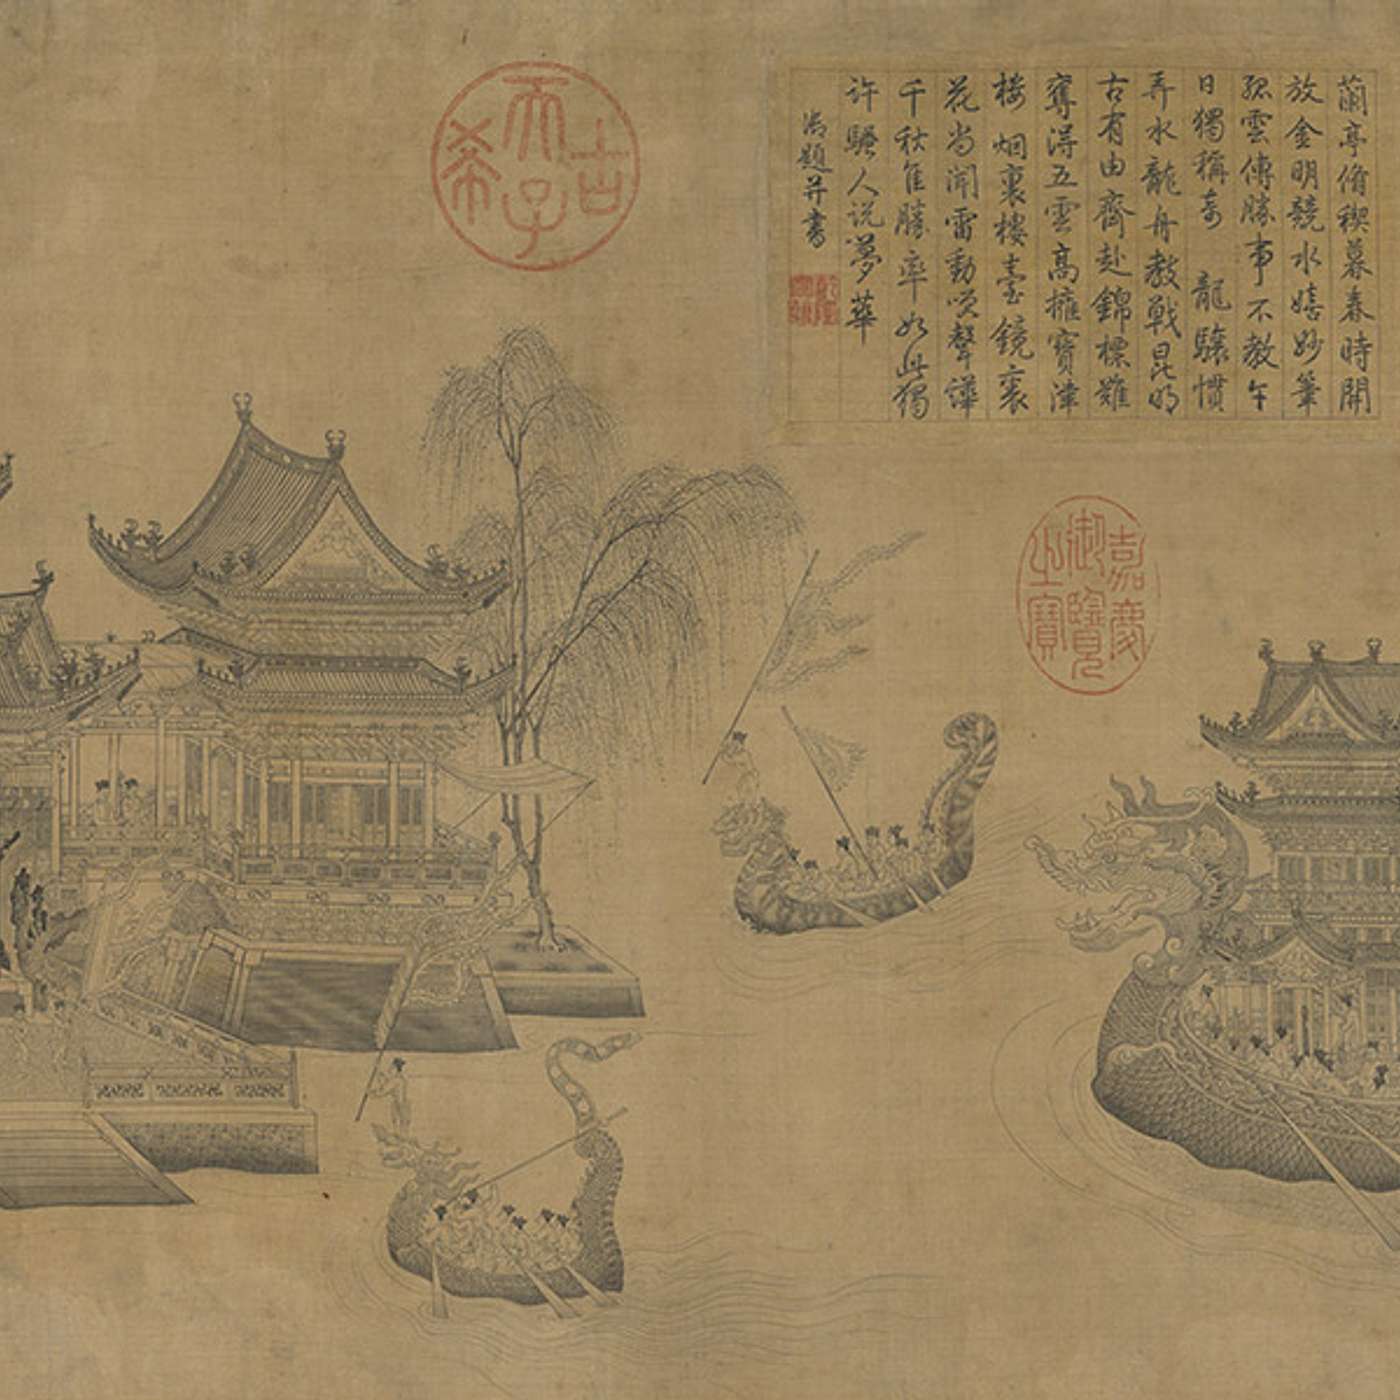 蘭亭脩禊暮春時開
放金明競水嬉妙筆
孤雲傳勝事不教午
日獨稱奇 龍驤慣
弄水龍舟教戰昆明
古有由齊赴錦標雖
奪得五雲高擁寶津
樓 烟裏樓臺鏡裏
花尚聞雷動咲聲譁
千秋佳勝率如此獨
許騷人說夢華
御題并書
嘉慶御覽之寶
古希天子